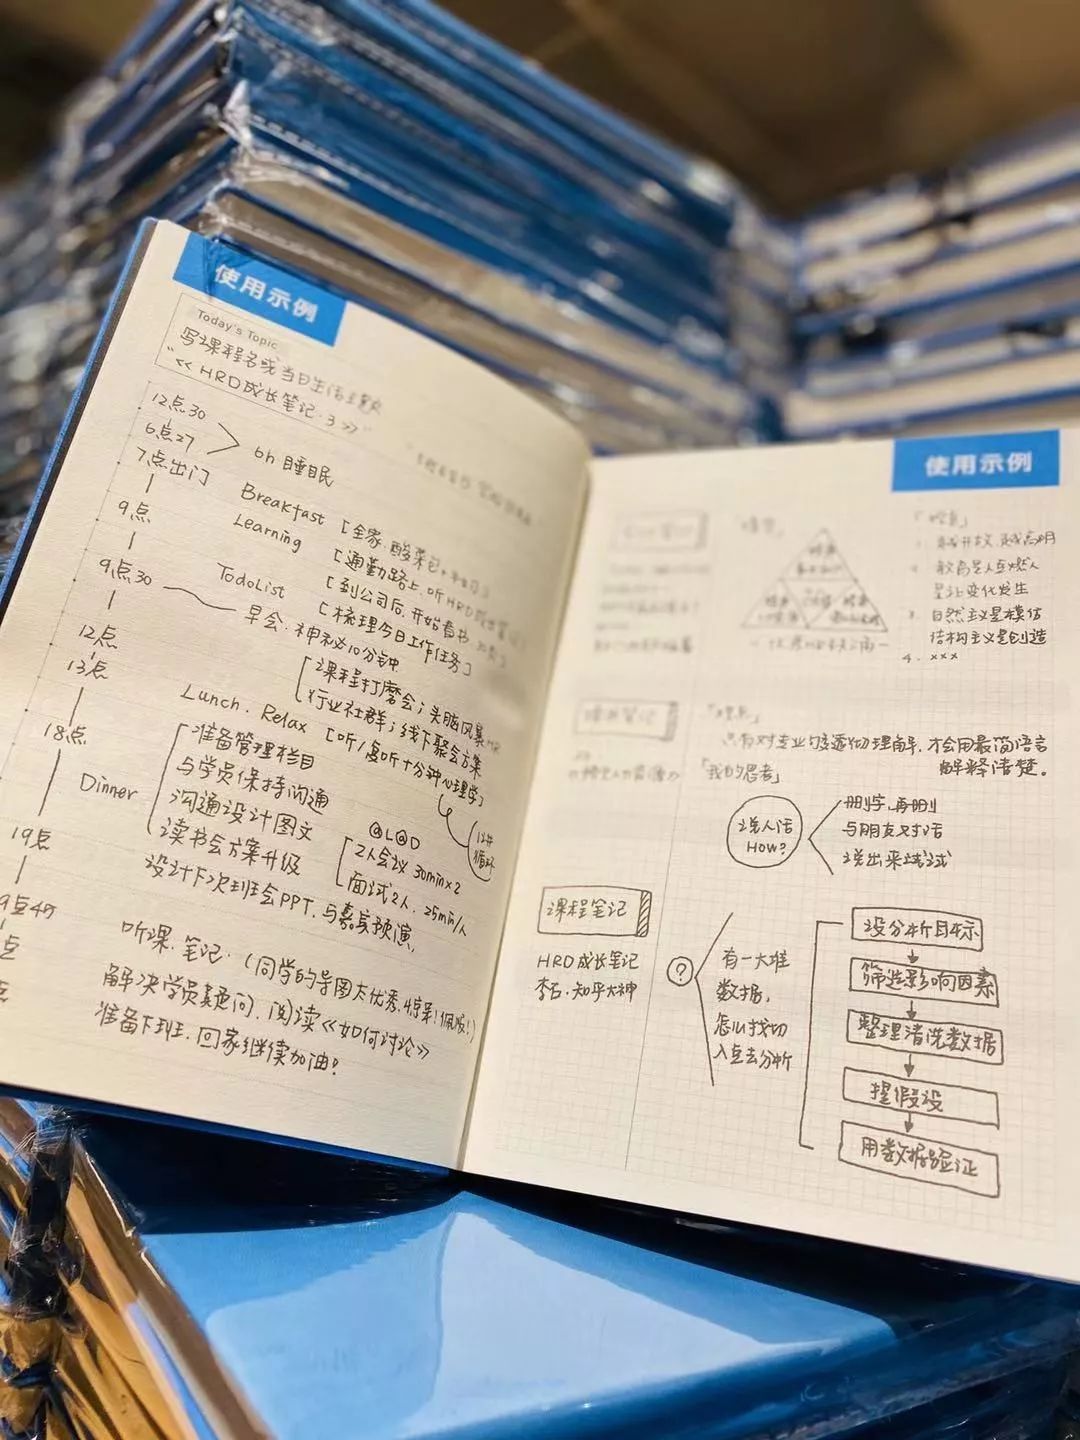 使用示例
Today's Topic
写课程名或当日生活主题
"《HRD成长笔记·3》"
12点30
6点27
6h 睡眠
7点出门
Breakfast [全家·酸菜包+
9点
Learning [通勤路上,听HRD成长笔记]
[到公司后,开始看书
9点30
TodoList [梳理今日工作任务]
早会·神秘10分钟
12点
[课程打磨会;头脑风暴
行业社群;线下聚会方案
13点
Lunch. Relax [听/复听十分钟心理学]
12讲
循环
18点
准备管理栏目
与学员保持沟通
沟通设计图文
读书会方案升级
Dinner
@L@D
2人会议 30min×2
面试2人, 25min/人
19点
设计下次班会PPT,与嘉宾预演,
9点45
听课、笔记·(同学的导图太优秀,惊呆!佩服!)
点
解决学员疑问,阅读《如何讨论》
点
准备下班,回家继续加油!
使用示例
越开放,越高明
教育是人点燃人
是让变化发生
3. 自然主义是模仿
结构主义是创造
4. ×××
只有对专业够透彻理解,才会用最简语言
解释清楚。
「我的思考」
说人话
HOW?
删字,再删
与朋友对话
说出来试试
课程笔记
HRD成长笔记
李石·知乎大神
?
有一大堆
数据,
怎么找切
入点去分析
没分析目标
筛选影响因素
整理清洗数据
提假设
用数据验证